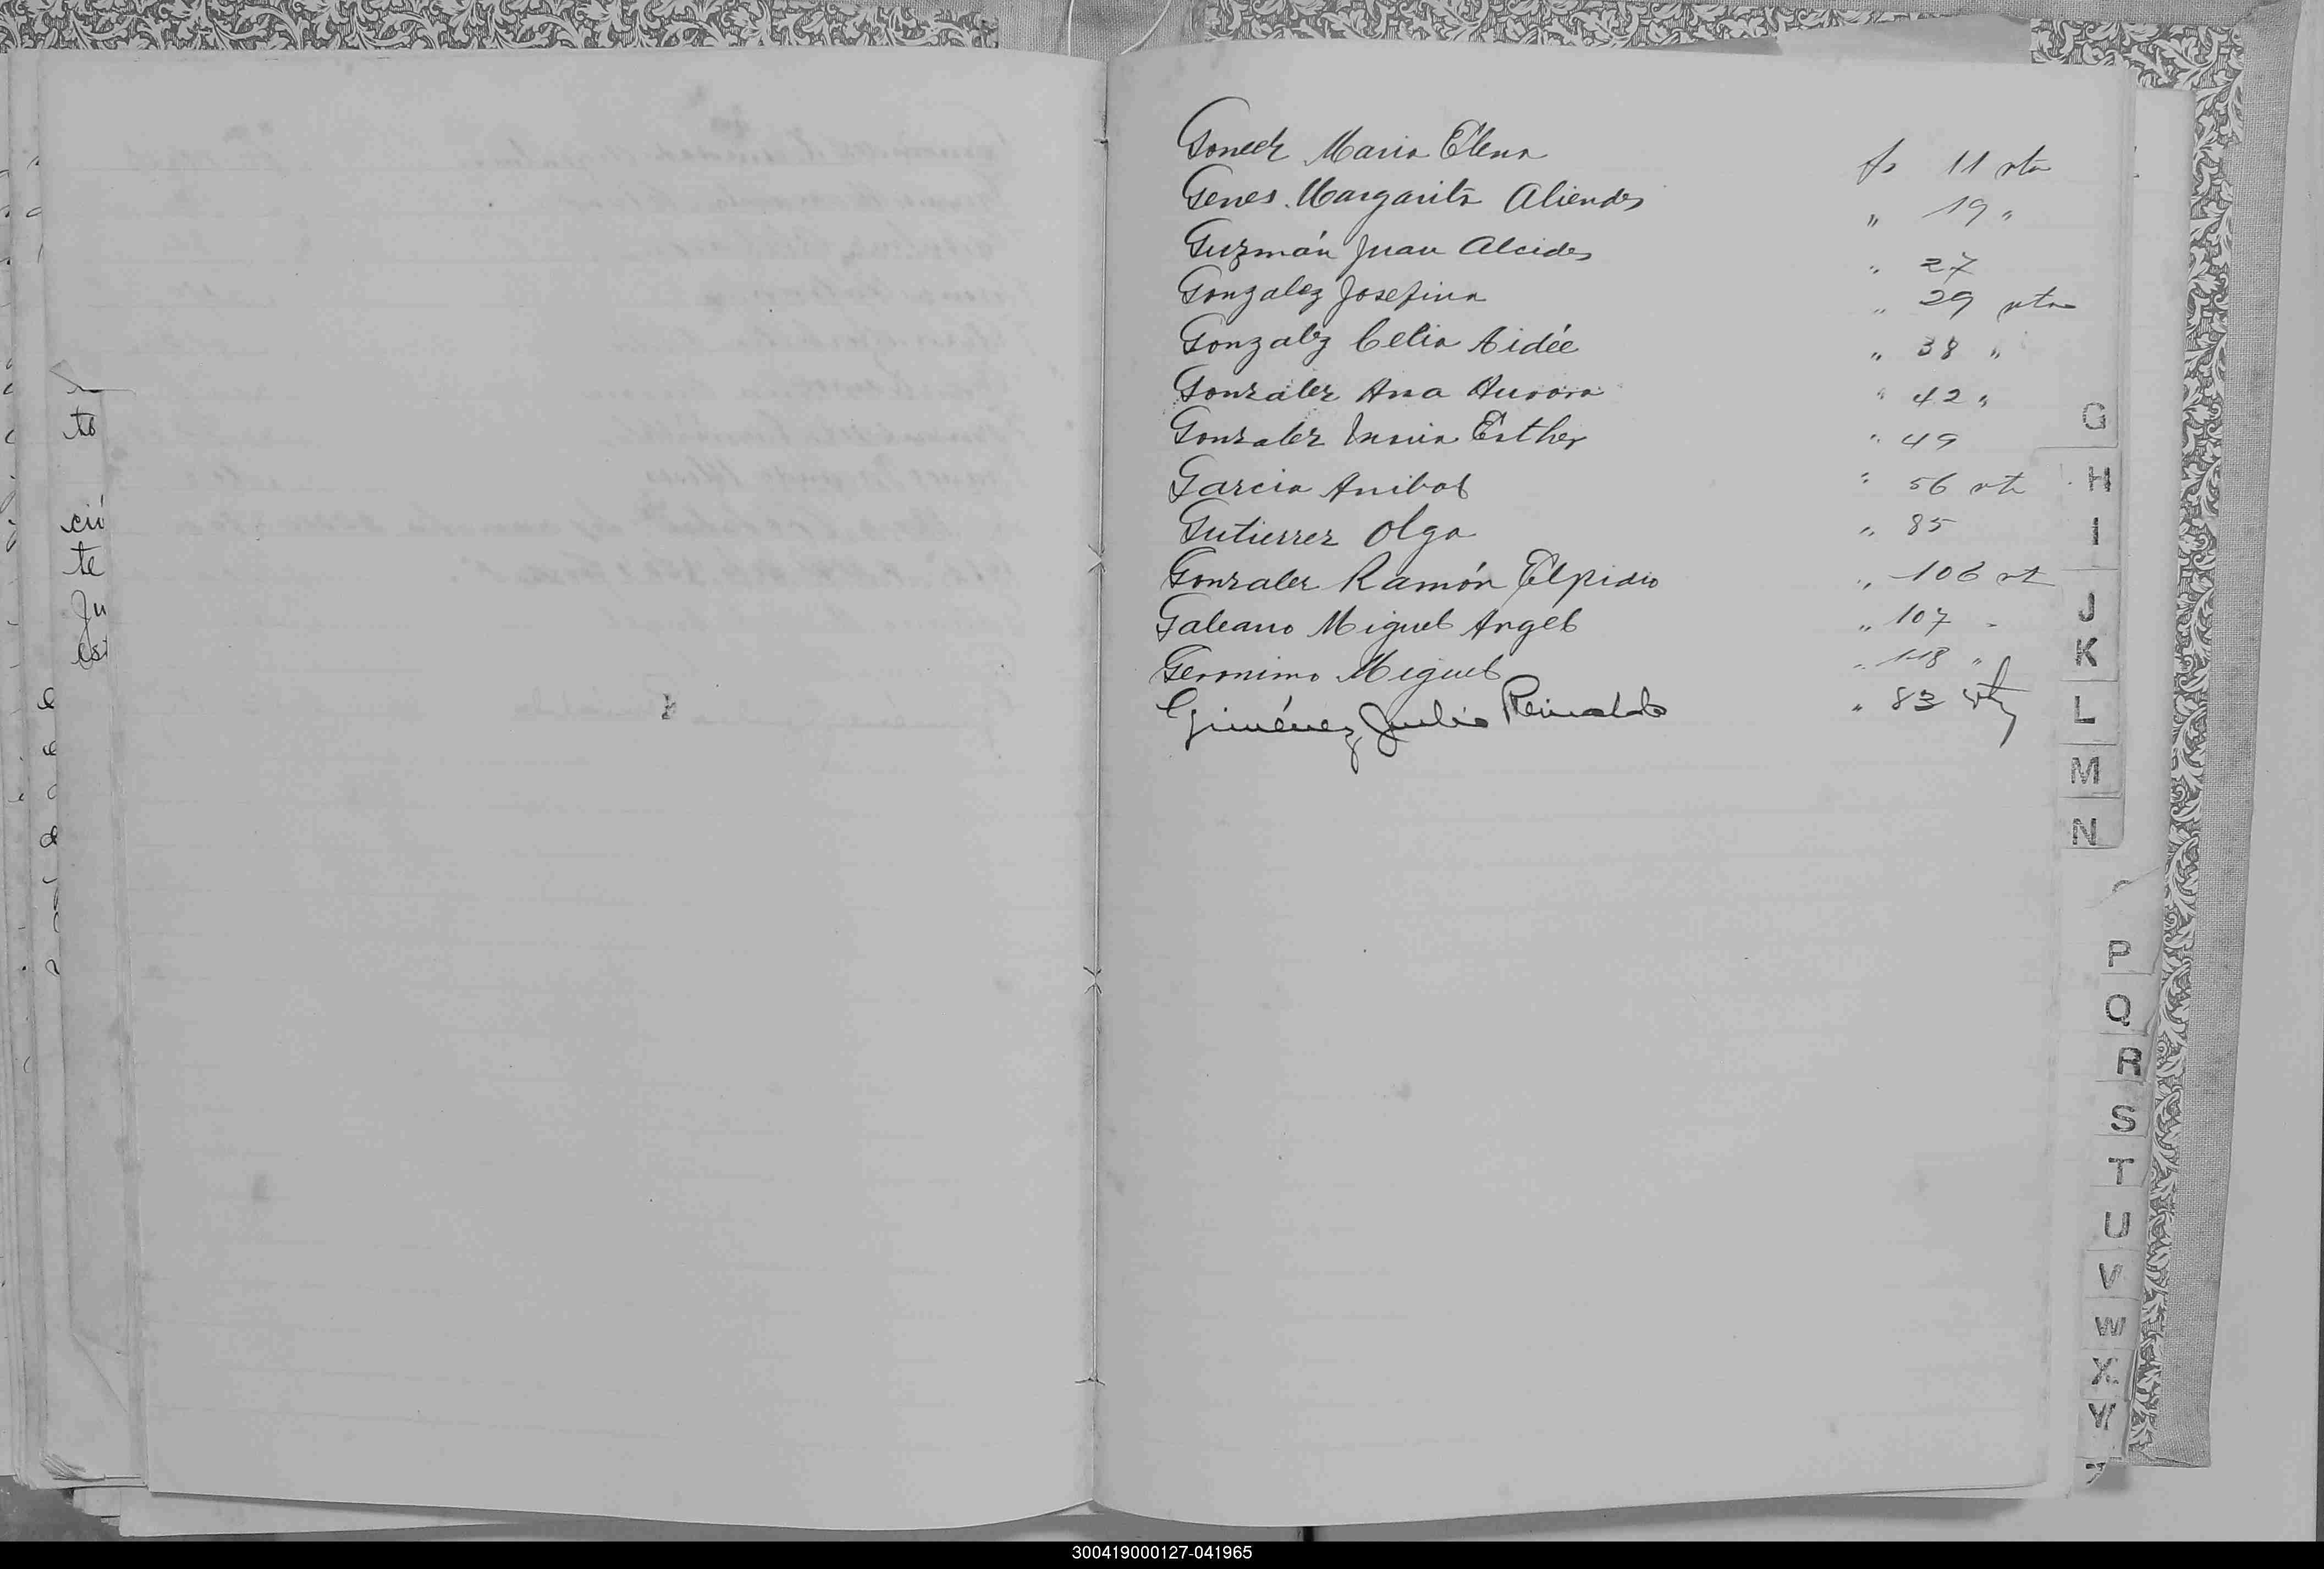 to
ciú
te
Ju
est
Maria Elena fs 11 vta
Genes Margarita Aliendes " 19 "
Guzmán Juan Alcides " 27
Gonzalez Josefina " 29 vta
Gonzalez Celia Aidée " 38 "
Gonzalez Ana Aurora " 42 "
Gonzalez Esther " 49
Garcia Anibal " 56 vta
Gutierrez Olga " 85
Gonzalez Ramón Elpidio " 106 vt
Galeano Miguel Angel " 107 "
Geronimo Miguel " 118 "
Giménez Julio Reinaldo " 83 vta
G
H
I
J
K
L
M
N
P
Q
R
S
T
U
V
W
X
Y
300419000127-041965